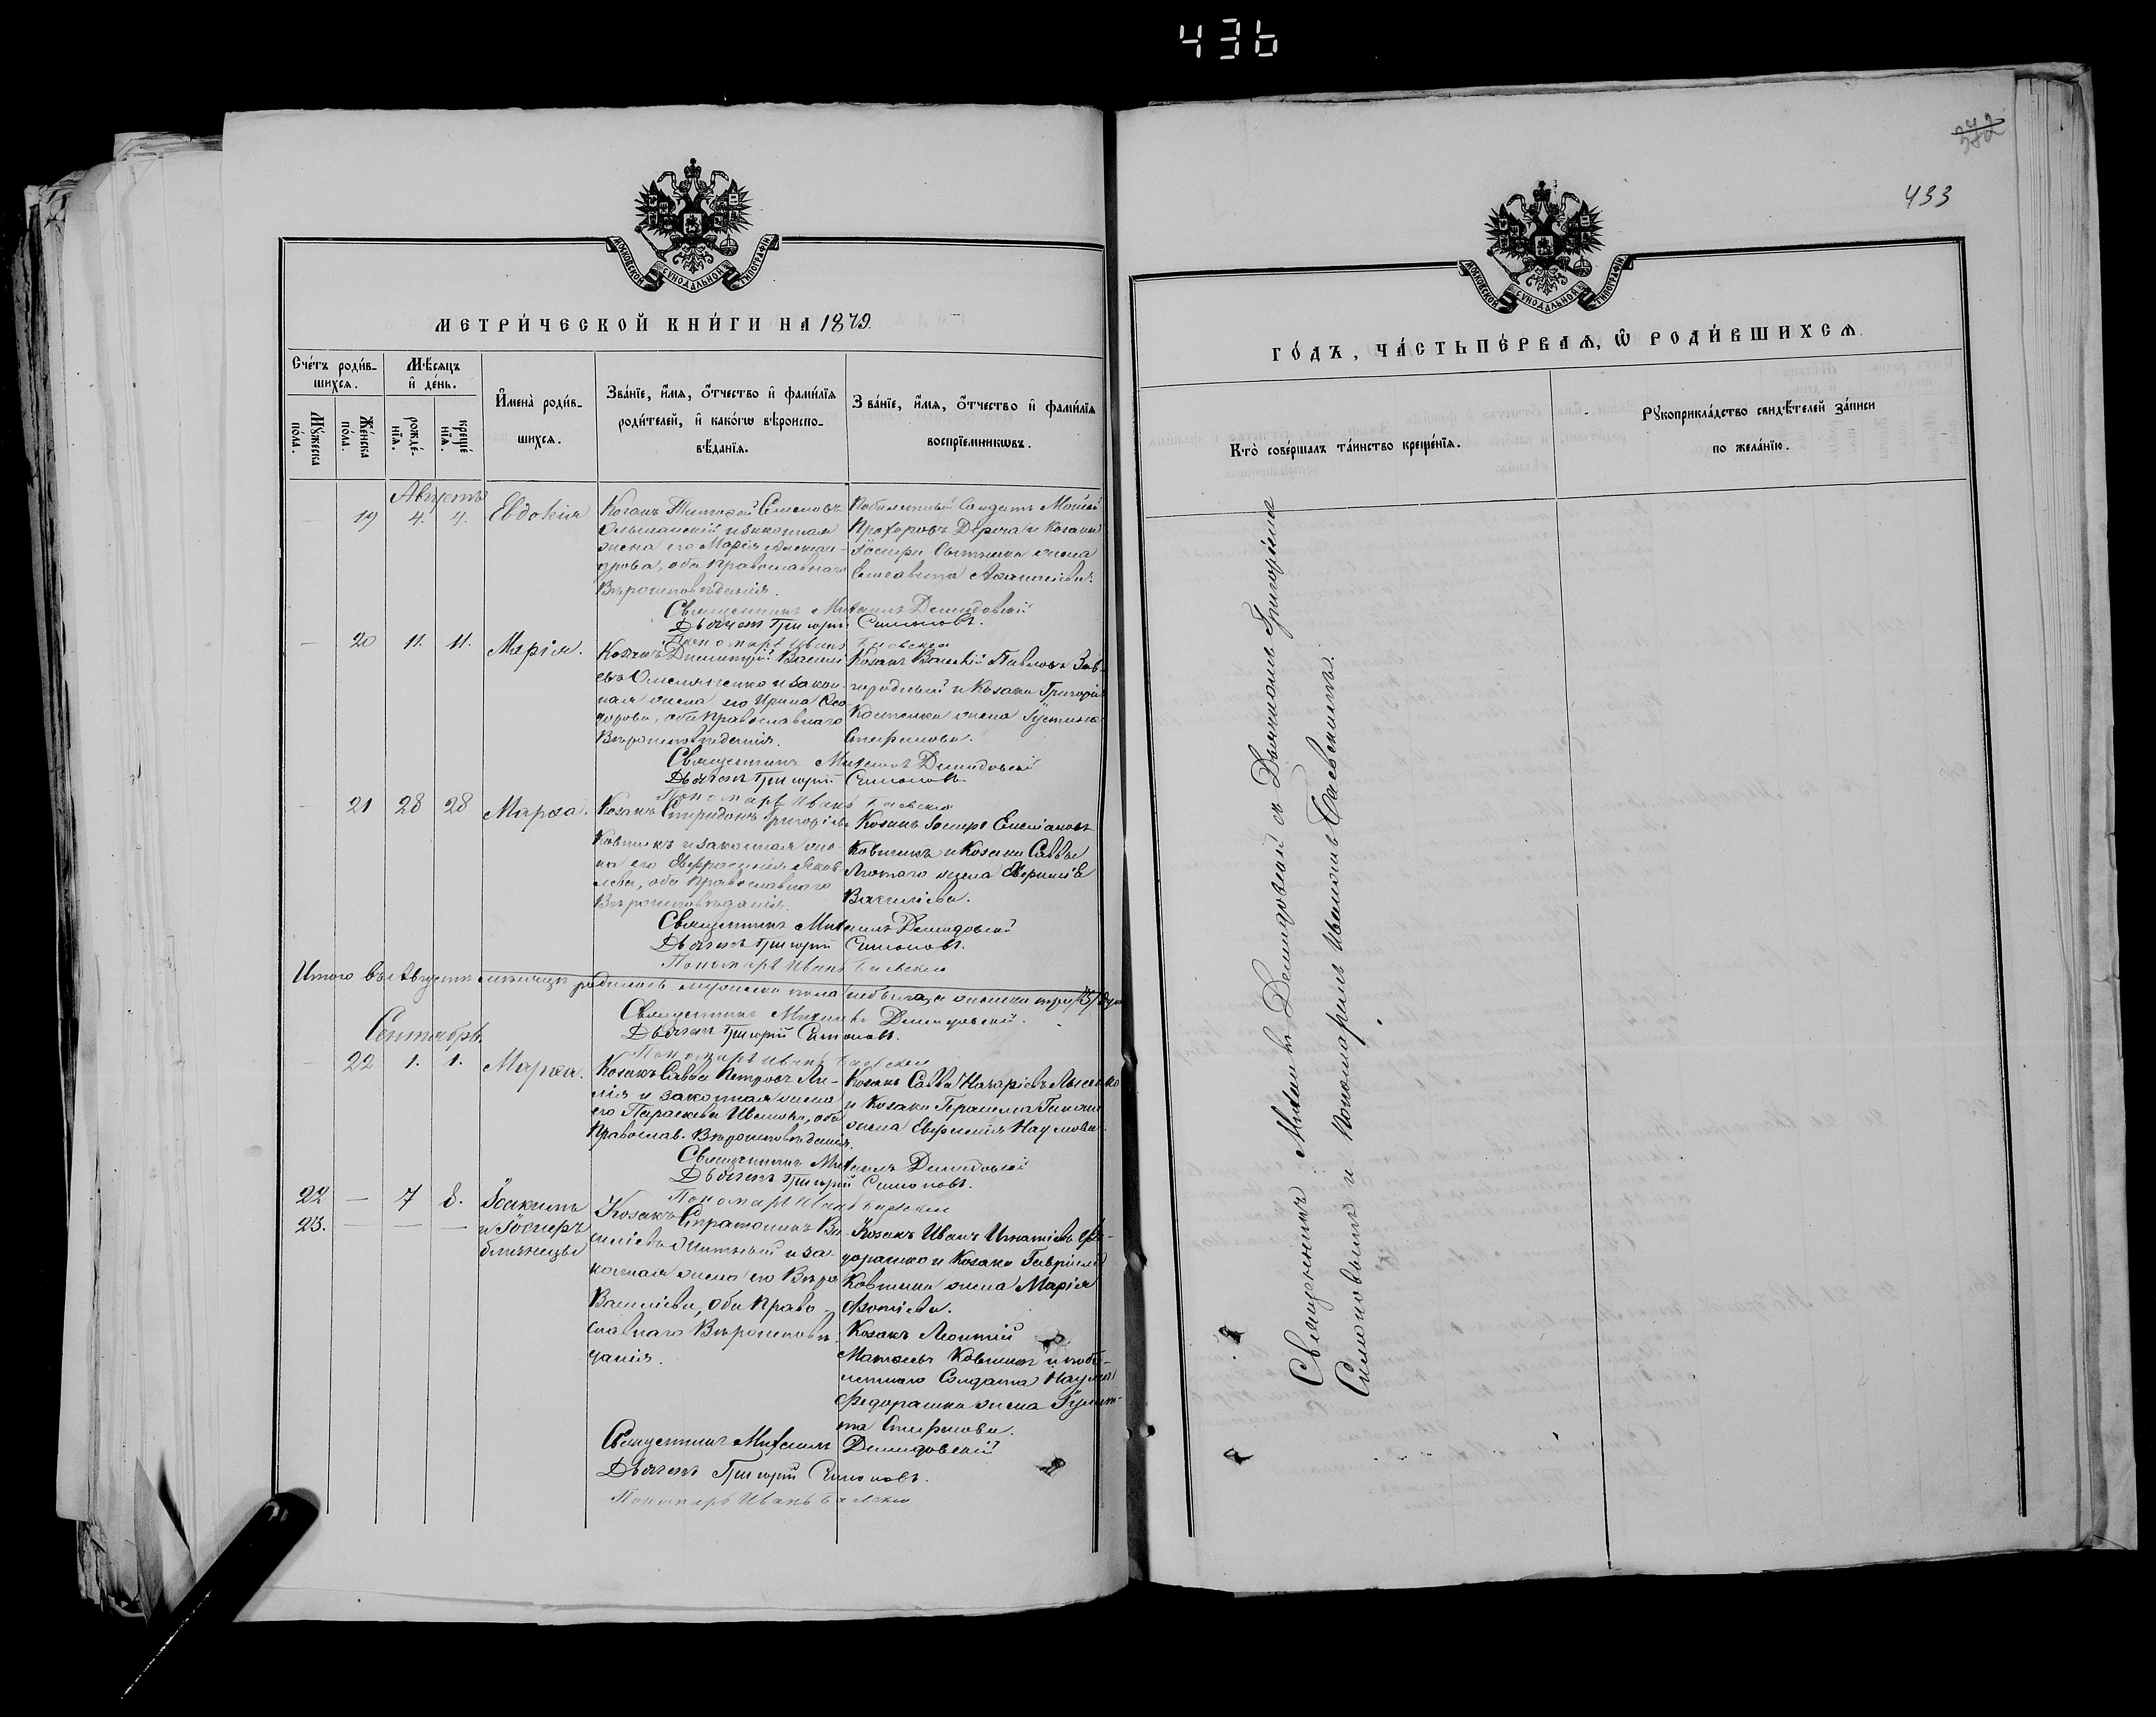 436
МОСКОВСКОЙ СѴНОДАЛЬНОЙ ТИПОГРАФІИ
МЕТРИ́ЧЕСКОЙ КНИ́ГИ НА 1879.
Сче́тъ роди́в-
шихся.
Мѣ́сяцъ
и҆ де́нь.
Мꙋ́жеска
по́ла.
Же́нска
по́ла.
рожде́-
нїѧ.
креще́
нїѧ.
И҆мена̀ роди́в-
шихся.
Зва́нїе, и҆́мя, ѻ҆́тчество и҆ фами́лїѧ
роди́телей, и҆ како́гѡ вѣроиспо-
вѣ́данїѧ.
Зва́нїе, и҆́мя, ѻ҆́тчество и҆ фами́лїѧ
воспрїе́мникѡвъ.
Августъ
19 4. 4. Евдокія
Козакъ Тимофей Семеновъ
Ольшанскій и законная
жена его Марія Александ-
рова, оба православнаго
Вѣроисповѣданія.
Побилетный Солдатъ Мойсей
Прохоровъ и Козака
Іосифа жена
Елисавета
Священникъ Михаилъ Демидовскій
Дьячекъ Григорій Симоновъ.
Пономарь Иванъ Баевскій
— 20 11. 11. Марія.
Козакъ Димитрій Васили
евъ Омельяненко и закон-
ная жена его Ирина Ѳео
дорова, оба православнаго
Вѣроисповѣданія.
Козакъ Василій Павловъ Заг-
городный и Козака Григорія
жена Іустина
Стефанова.
Священникъ Михаилъ Демидовскій
Дьячекъ Григорій Симоновъ.
Пономарь Иванъ Баевскій
— 21 28 28 Марѳа.
Козакъ Спиридонъ Григоріевъ
Ковшикъ и законная же-
на его Евфросинія Яков-
лева, оба православнаго
Вѣроисповѣданія.
Козакъ Іосифъ
и Козака Саввы
Лютаго жена Евфимія
Васильева.
Священникъ Михаилъ Демидовскій
Дьячекъ Григорій Симоновъ.
Пономарь Иванъ Баевскій
Итого въ Августѣ мѣсяцѣ родилось мужеска пола небыло, а женска три /3/ души
Священникъ Михаилъ Демидовскій.
Дьячекъ Григорій Симоновъ.
Пономарь Иванъ Баевскій
Сентябрь
— 22 1. 1. Марѳа.
Козакъ Савва Петровъ
и законная жена
его Параскева Иванова, оба
Православ. Вѣроисповѣданія.
Козакъ Савва Назаріевъ Лысенко
и Козака Герасима
жена Евфимія Наумова.
Священникъ Михаилъ Демидовскій
Дьячекъ Григорій Симоновъ.
Пономарь Иванъ Баевскій
22 — 7 8. Іоакимъ
23. — — — и Іосифъ
близнецы
Козакъ Стратоникъ Ва
силіевъ и за-
конная жена его Вѣра
Василіева, оба Право-
славнаго Вѣроисповѣ
данія.
Козакъ Иванъ Игнатіевъ Фе-
дорашко и Козака Гавріила
Ковшика жена Марія
Фотіева.
Козакъ Леонтій
Матвіевъ Ковшикъ и поби-
летнаго Солдата Наума
Федорашка жена Іулит-
та Стефанова.
Священникъ Михаилъ Демидовскій
Дьячекъ Григорій Симоновъ.
Пономарь Иванъ Баевскій
372
433
МОСКОВСКОЙ СѴНОДАЛЬНОЙ ТИПОГРАФІИ
ГО́ДЪ, ЧА́СТЬ ПЕ́РВАѦ, Ѽ РОДИ́ВШИХСѦ
Кто̀ соверша́лъ та́инство креще́нїѧ.
Рꙋкоприкла́дство свидѣ́телей за́писи
по жела́нїю.
Священникъ Михаилъ Демидовскій съ Дьячкомъ Григоріемъ
Симоновымъ и Пономаремъ Иваномъ Баевскимъ.